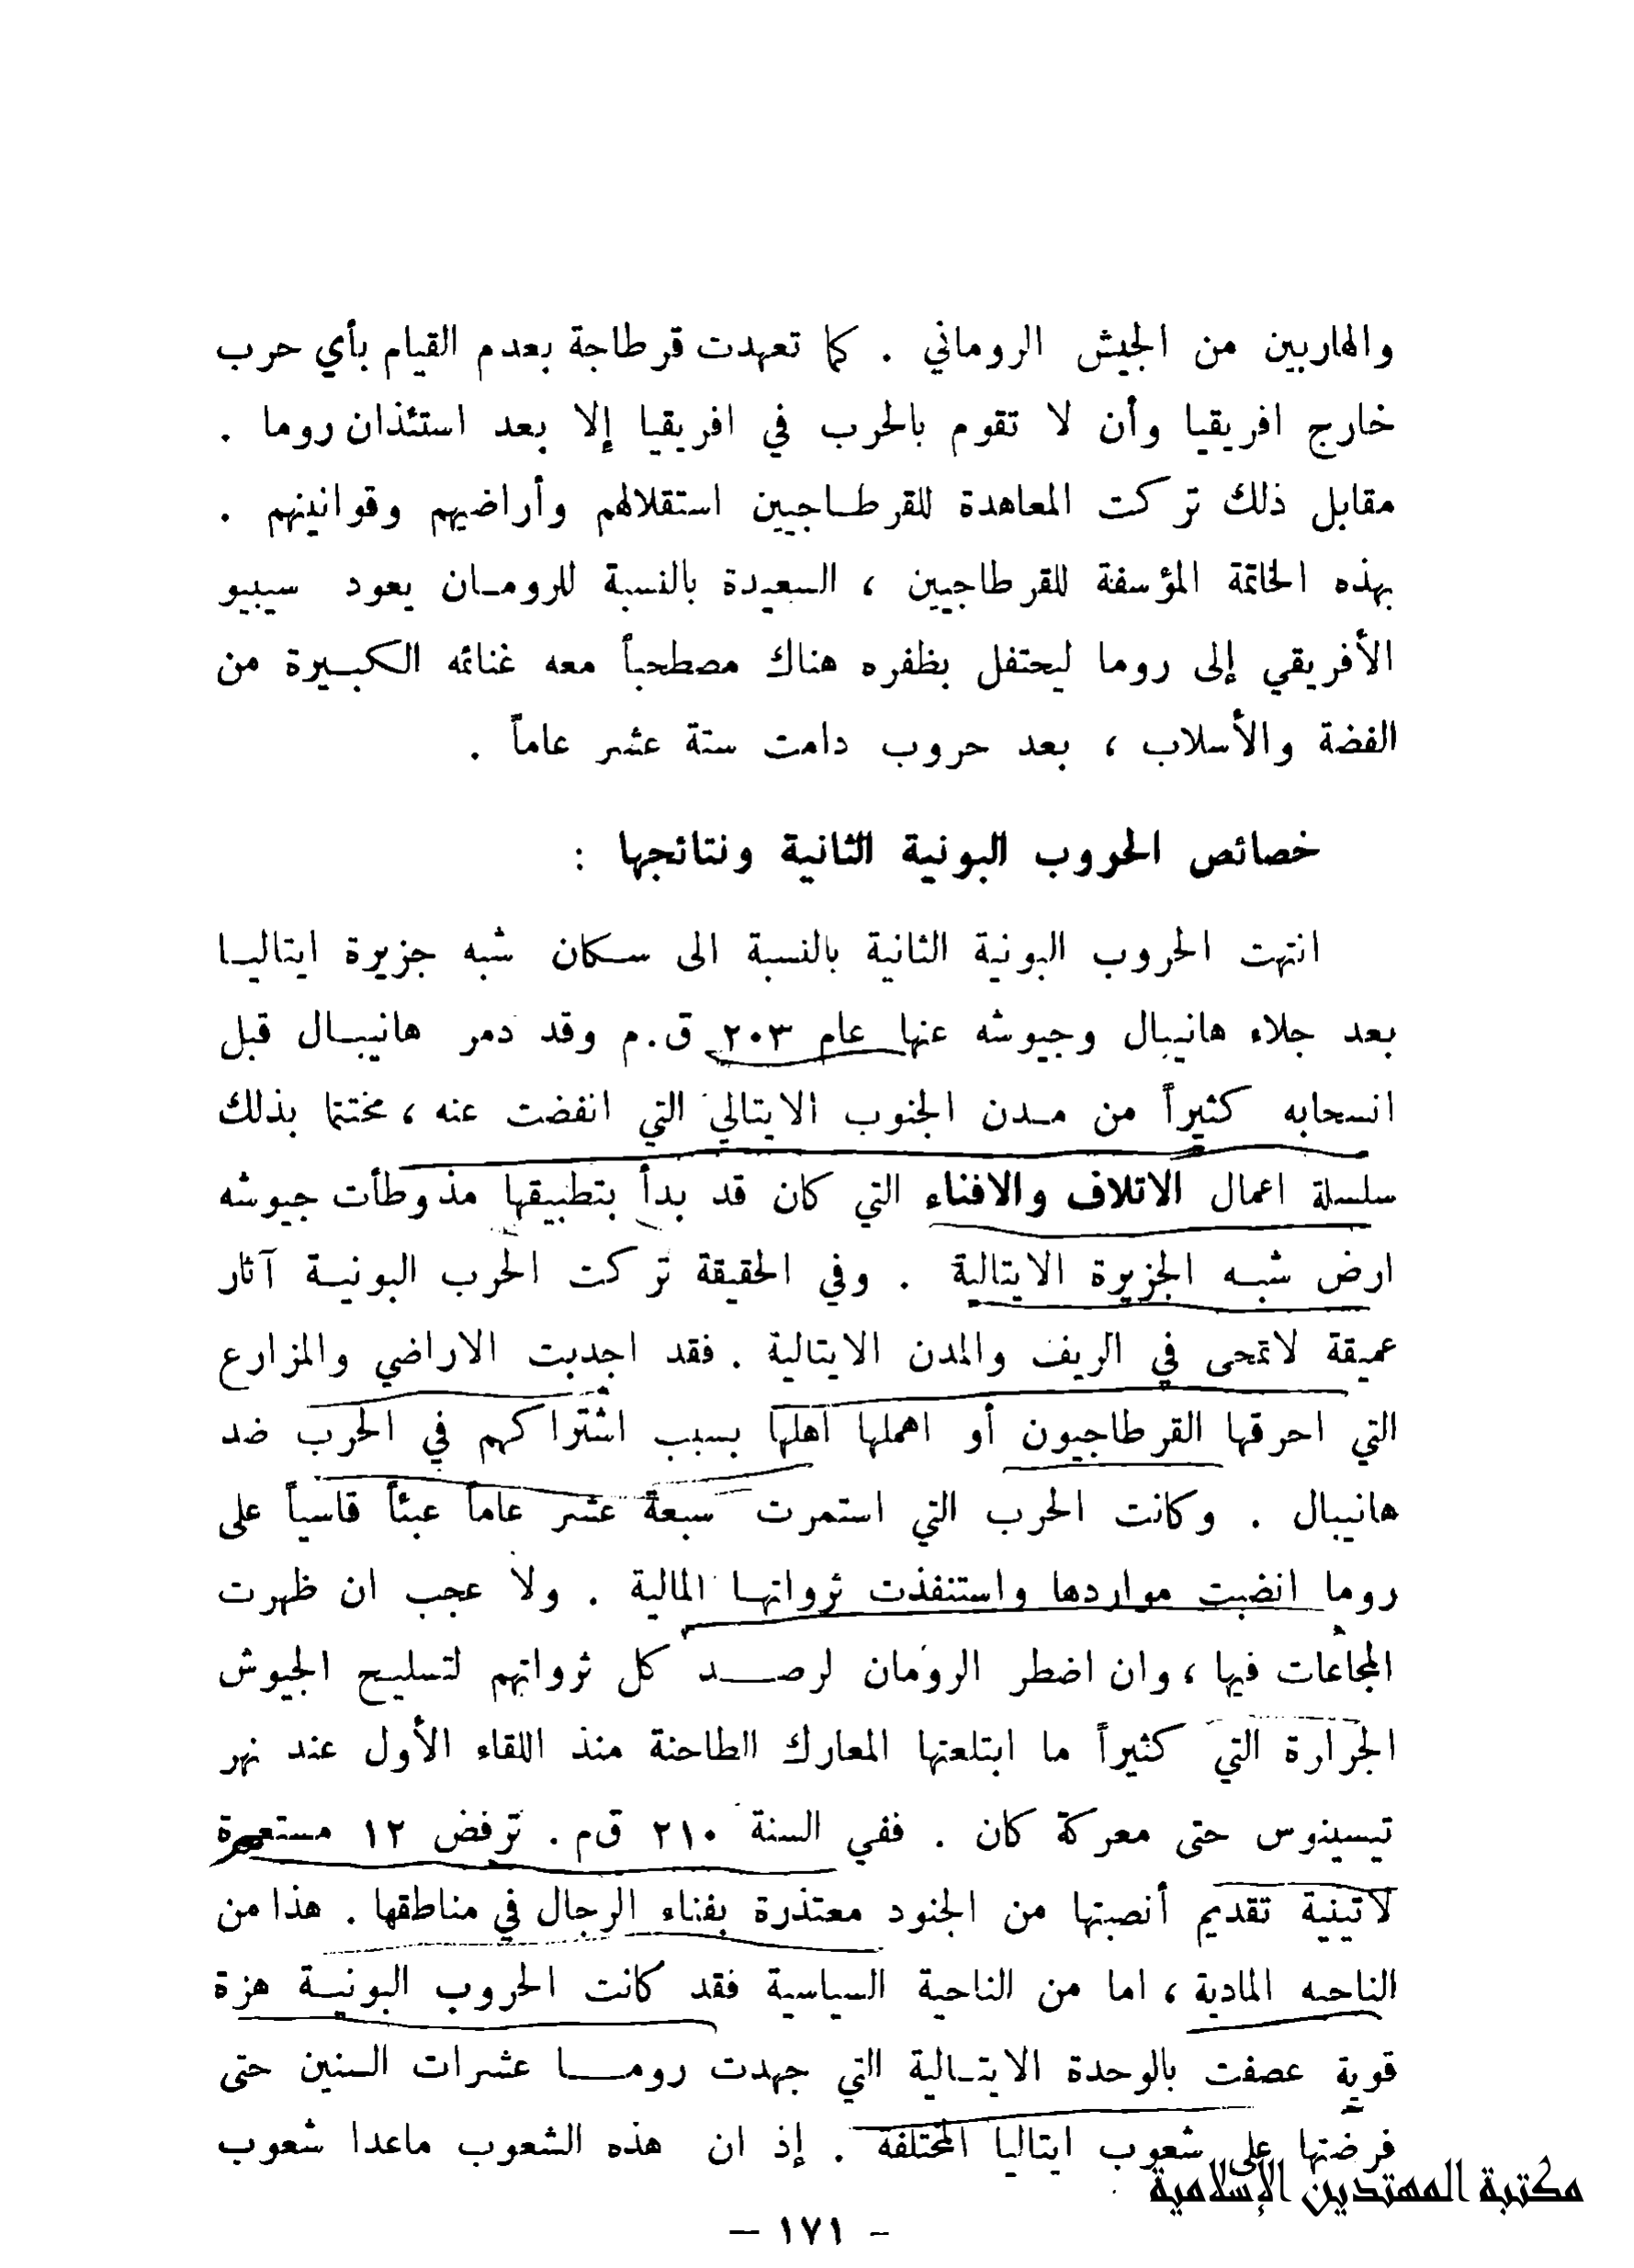 والهاربين من الجيش الروماني . كما تعهدت قرطاجة بعدم القيام بأي حرب
خارج افريقيا وأن لا تقوم بالحرب في افريقيا إلا بعد استئذان روما .
مقابل ذلك تركت المعاهدة للقرطاجيين استقلالهم وأراضيهم وقوانينهم .
بهذه الخاتمة المؤسفة للقرطاجيين ، السعيدة بالنسبة للرومان يعود سيبيو
الأفريقي إلى روما ليحتفل بظفره هناك مصطحباً معه غنائمه الكبيرة من
الفضة والأسلاب ، بعد حروب دامت ستة عشر عاماً .
خصائص الحروب البونية الثانية ونتائجها :
انتهت الحروب البونية الثانية بالنسبة الى سكان شبه جزيرة ايتاليا
بعد جلاء هانيبال وجيوشه عنها عام ٢٠٣ ق.م وقد دمر هانيبال قبل
انسحابه كثيراً من مدن الجنوب الايتالي التي انفضت عنه ، مختتما بذلك
سلسلة اعمال الاتلاف والافناء التي كان قد بدأ بتطبيقها مذ وطأت جيوشه
ارض شبه الجزيرة الايتالية . وفي الحقيقة تركت الحرب البونية آثار
عميقة لاتمحى في الريف والمدن الايتالية . فقد اجدبت الاراضي والمزارع
التي احرقها القرطاجيون أو اهملها اهلها بسبب اشتراكهم في الحرب ضد
هانيبال . وكانت الحرب التي استمرت سبعة عشر عاماً عبئاً قاسياً على
روما انضبت مواردها واستنفذت ثرواتها المالية . ولا عجب ان ظهرت
المجاعات فيها ، وان اضطر الرومان لرصد كل ثرواتهم لتسليح الجيوش
الجرارة التي كثيراً ما ابتلعتها المعارك الطاحنة منذ اللقاء الأول عند نهر
تيسينوس حتى معركة كان . ففي السنة ٢١٠ ق م . ترفض ١٢ مستعمرة
لاتينية تقديم أنصبتها من الجنود معتذرة بفناء الرجال في مناطقها . هذا من
الناحيه المادية ، اما من الناحية السياسية فقد كانت الحروب البونية هزة
قوية عصفت بالوحدة الايتالية التي جهدت روما عشرات السنين حتى
فرضتها على شعوب ايتاليا المختلفة . إذ ان هذه الشعوب ماعدا شعوب
مكتبة المهتدين الإسلامية
- ١٧١ -